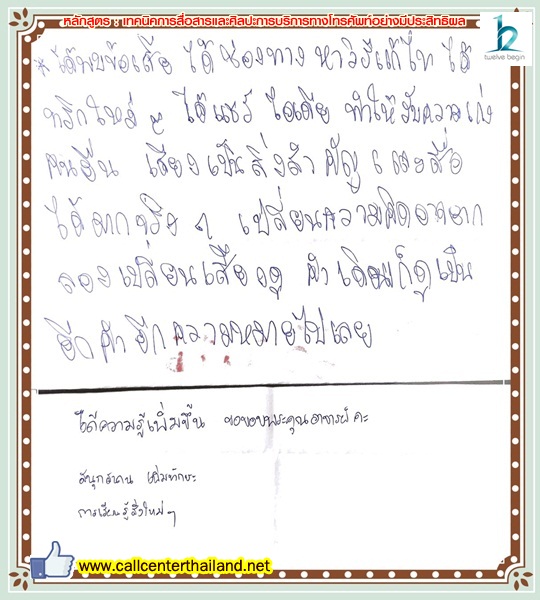 หลักสูตร : เทคนิคการสื่อสารและศิลปะการบริการทางโทรศัพท์อย่างมีประสิทธิผล
twelve begin
* ได้พบข้อเสีย ได้ช่องทาง หาวิธีแก้ไข ได้
ทริกใหม่ ๆ ได้แชร์ ไอเดีย ทำให้รับความเก่ง
คนอื่น เสียงเป็นสิ่งสำคัญ และสื่อ
ได้มากจริง ๆ เปลี่ยนความคิด
ลองเปลี่ยนเสียงดู คำเดิมก็ดูเป็น
อีกคำอีกความหมายไปเลย
ได้ความรู้เพิ่มขึ้น ขอขอบพระคุณอาจารย์ คะ
สนุกสนาน เพิ่มทักษะ
การเรียนรู้สิ่งใหม่ ๆ
www.callcenterthailand.net